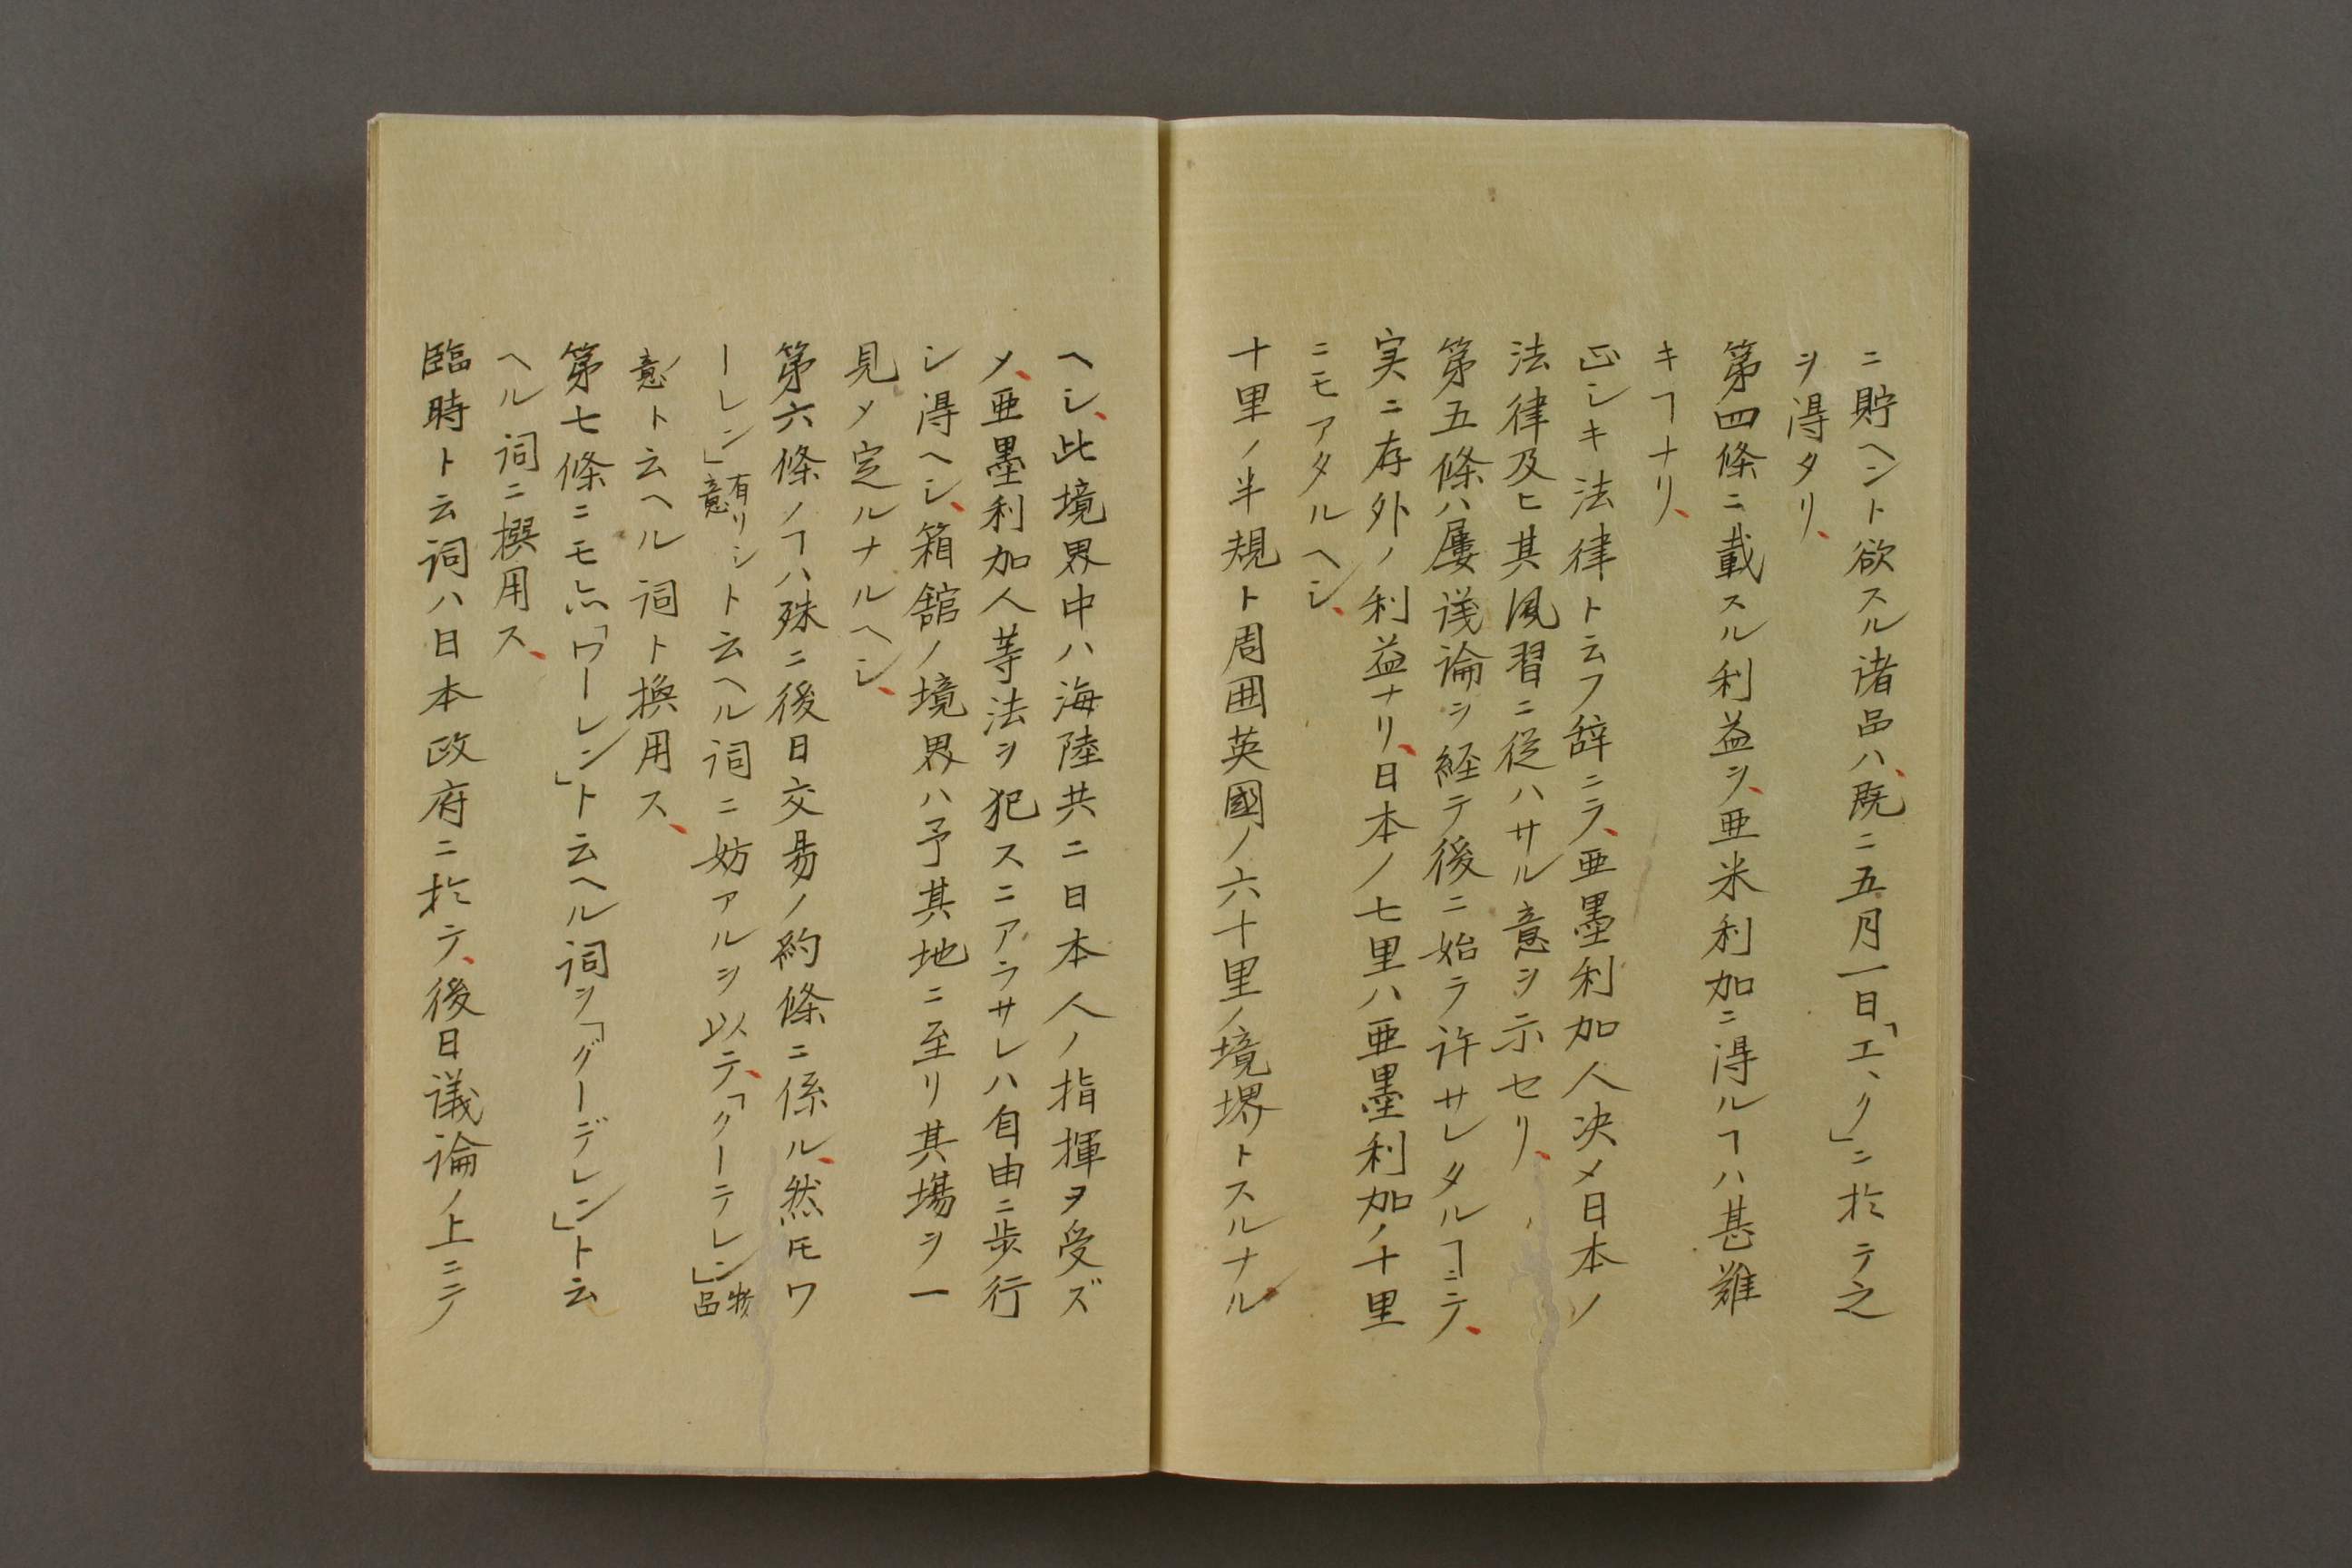 ニ貯ヘント欲スル諸品ハ、既ニ五月一日「エ、ク」ニ於テ之
ヲ得タリ、
第四條ニ載スル利益ヲ、亜米利加ニ得ルヿハ甚難
キヿナリ、
正シキ法律ト云フ辞ニテ、亜墨利加人決メ日本ノ
法律及ヒ其風習ニ従ハサル意ヲ示セリ、
第五條ハ屢議論ヲ経テ後ニ始テ許サレタルヿニテ、
実ニ存外ノ利益ナリ、日本ノ七里ハ亜墨利加ノ十里
ニモアタルヘシ、
十里ノ半規ト周囲英國ノ六十里ノ境堺トスルナル
ヘシ、此境界中ハ海陸共ニ日本人ノ指揮ヲ受ズ
メ、亜墨利加人等法ヲ犯スニアラサレハ自由ニ歩行
シ得ヘシ、箱舘ノ境界ハ予其地ニ至リ其場ヲ一
見メ定ルナルヘシ、
第六條ノヿハ殊ニ後日交易ノ約條ニ係ル、然𪜈ワ
ーレン」有リシ意ト云ヘル詞ニ妨アルヲ以テ、「クーテレン」物品
意ト云ヘル詞ト換用ス、
第七條ニモ亦「ワーレン」ト云ヘル詞ヲ「グーデレン」ト云
ヘル詞ニ撰用ス、
臨時ト云詞ハ日本政府ニ於テ、後日議論ノ上ニテ